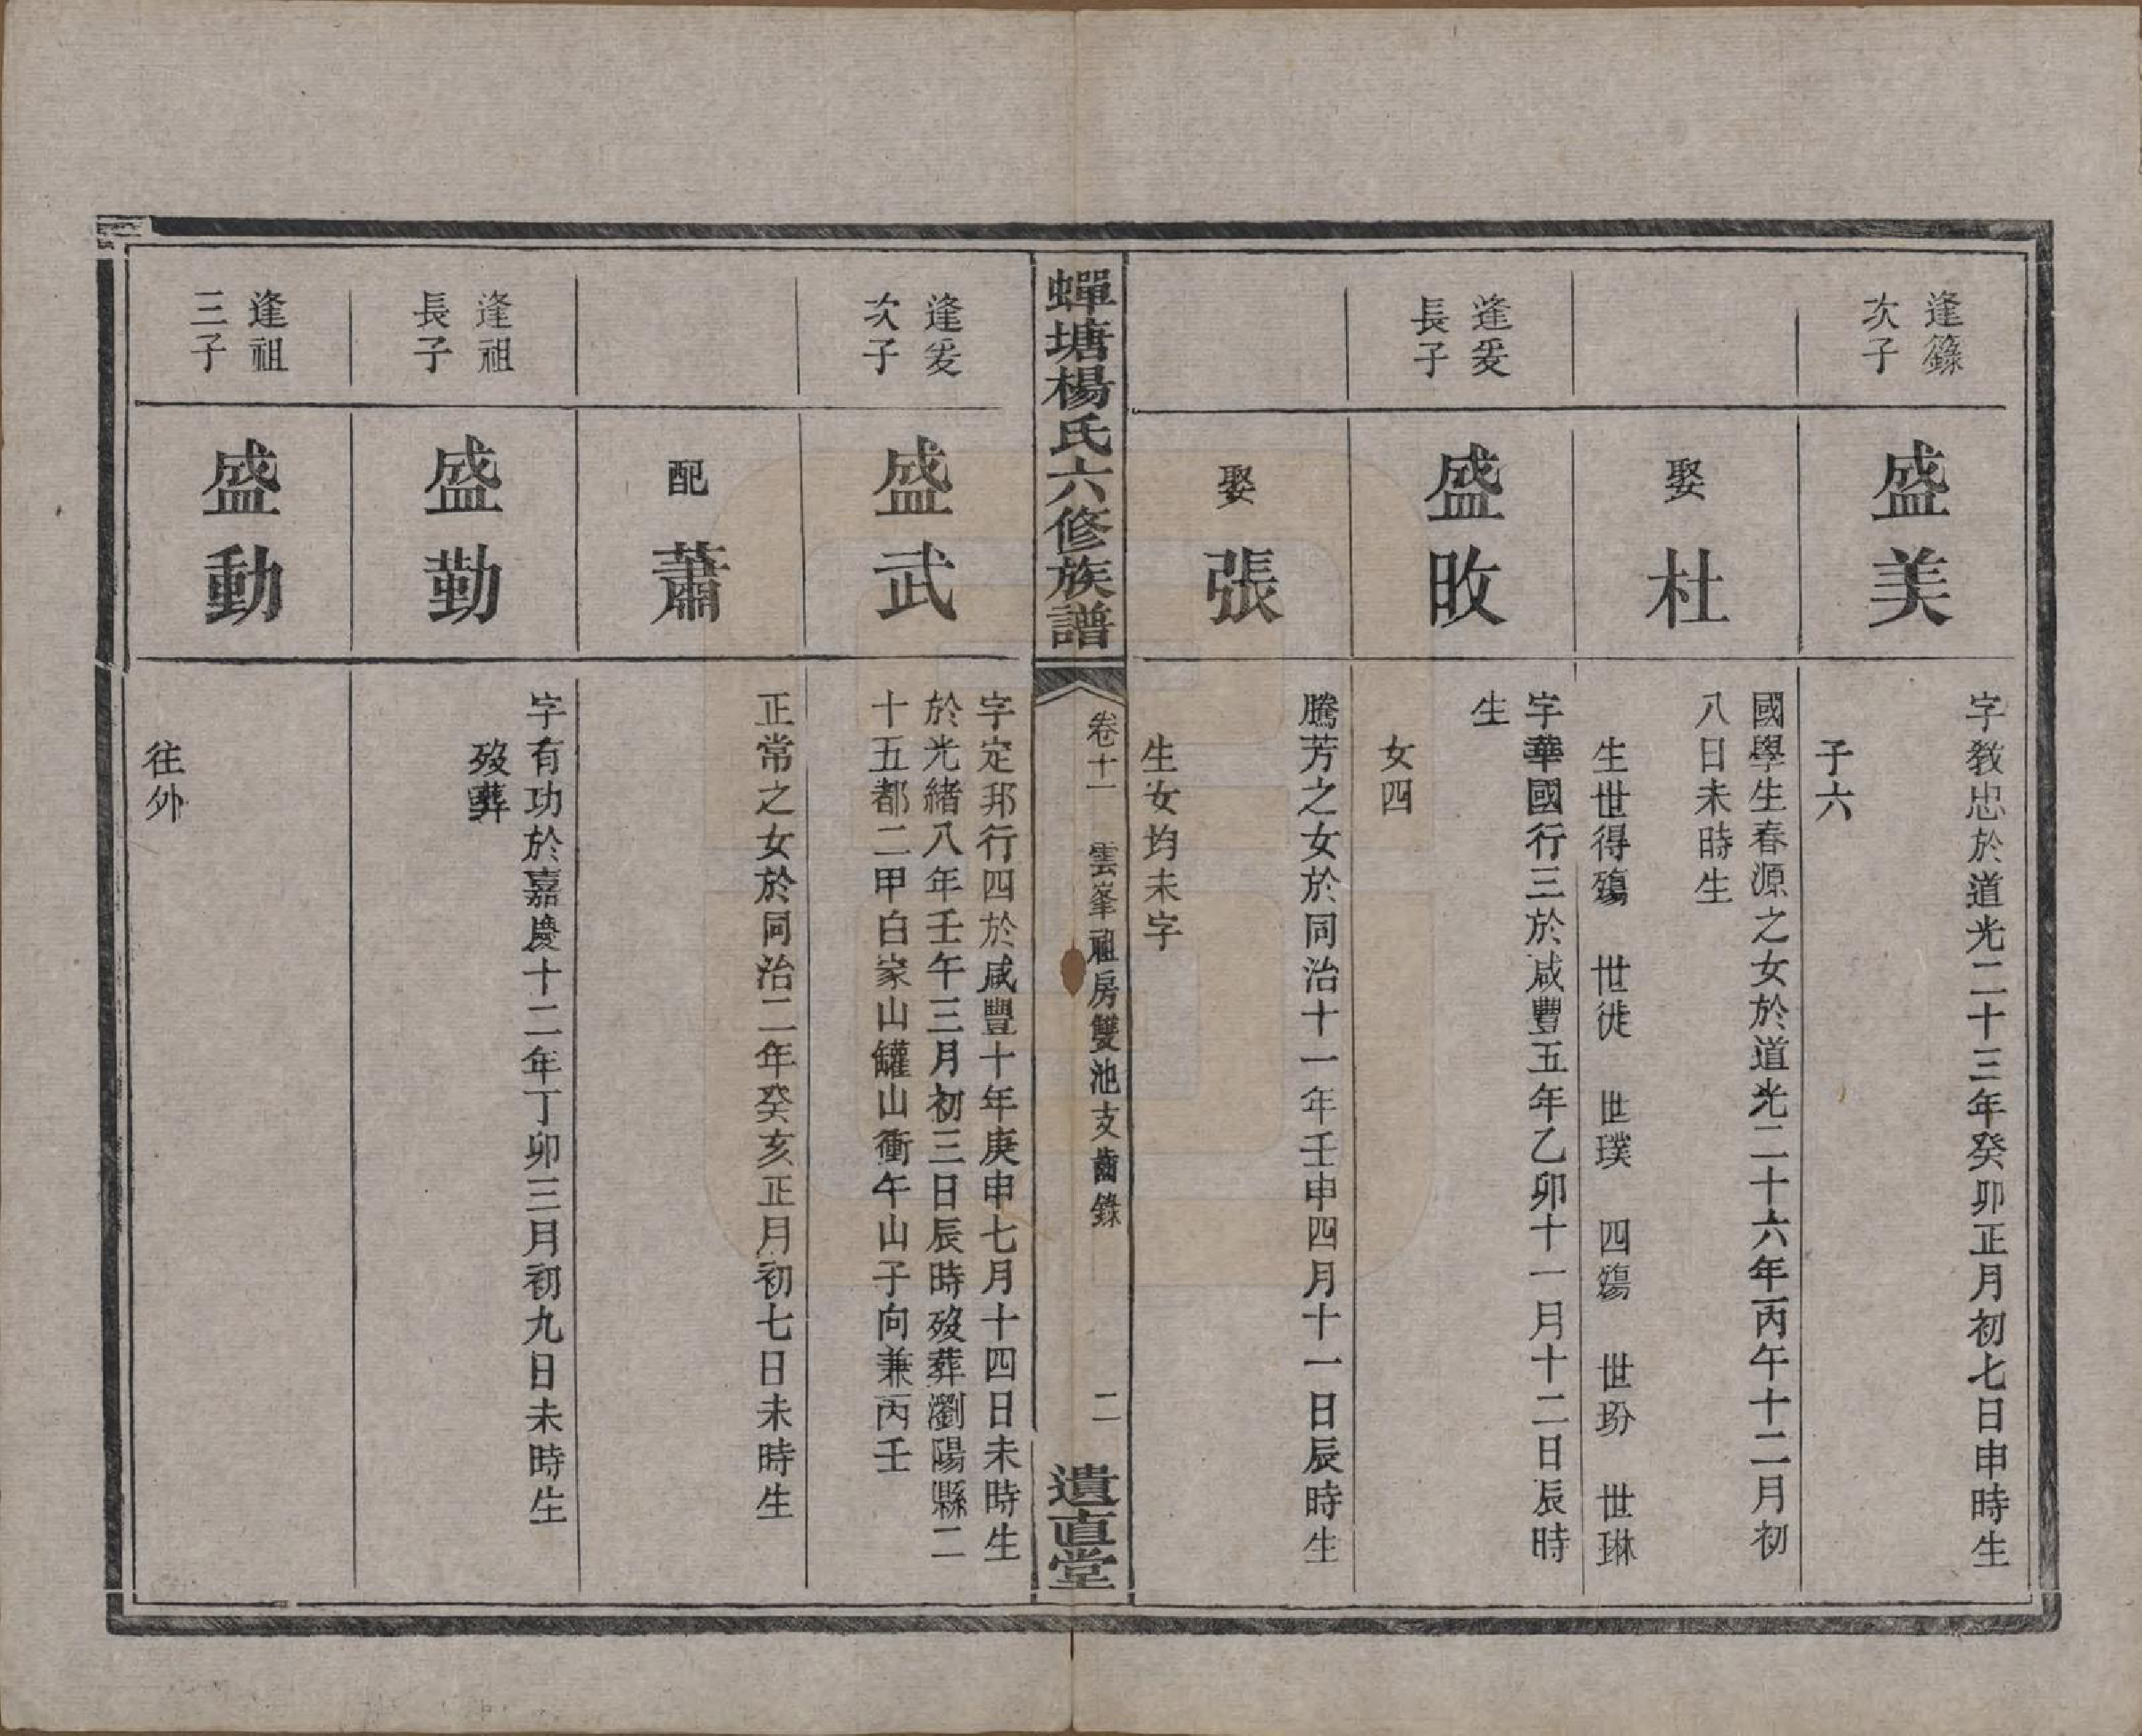 逢籙
次子
盛美
字敎忠於道光二十三年癸卯正月初七日申時生
子六
娶杜
國學生春源之女於道光二十六年丙午十二月初
八日未時生
生世得殤　世徙　世璞　四殤　世玢　世琳
逢爰
長子
盛畋
字華國行三於咸豐五年乙卯十一月十二日辰時
生
女四
娶張
騰芳之女於同治十一年壬申四月十一日辰時生
生女均未字
蟬塘楊氏六修族譜
卷十一　雲峯祖房雙池支齒錄
二
遺直堂
逢爰
次子
盛武
字定邦行四於咸豐十年庚申七月十四日未時生
於光緒八年壬午三月初三日辰時歿葬瀏陽縣二
十五都二甲白家山罐山衝午山子向兼丙壬
配蕭
正常之女於同治二年癸亥正月初七日未時生
逢祖
長子
盛勤
字有功於嘉慶十二年丁卯三月初九日未時生
歿葬
逢祖
三子
盛動
往外